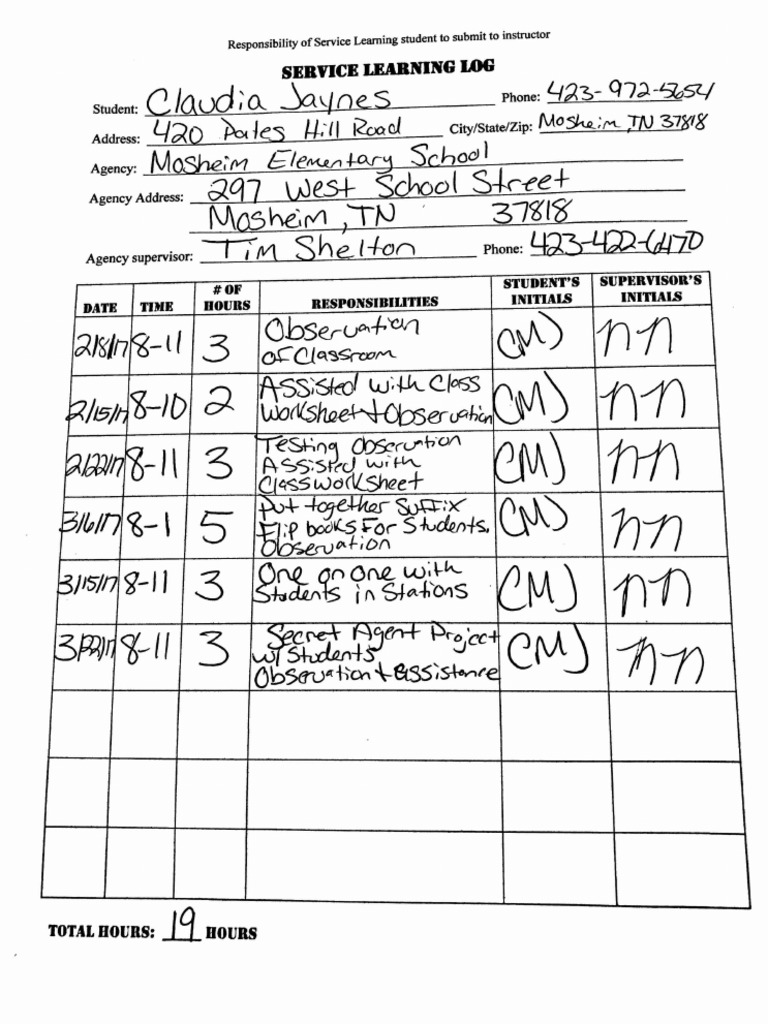 Responsibility of Service Learning student to submit to instructor
SERVICE LEARNING LOG
Student: Claudia Jaynes Phone: 423-972-5654
Address: 420 Pates Hill Road City/State/Zip: Mosheim, TN 37818
Agency: Mosheim Elementary School
Agency Address: 297 West School Street
Mosheim, TN 37818
Agency supervisor: Tim Shelton Phone: 423-422-6470
DATE TIME # OF HOURS RESPONSIBILITIES STUDENT'S INITIALS SUPERVISOR'S INITIALS
2/8/17 8-11 3 Observation
of Classroom CMJ nn
2/15/17 8-10 2 Assisted with Class
Worksheet + Observation CMJ nn
2/22/17 8-11 3 Testing Observation
Assisted with
Classworksheet CMJ nn
3/6/17 8-1 5 Put together Suffix
Flip books For Students.
Observation CMJ nn
3/15/17 8-11 3 One on one with
Students in Stations CMJ nn
3/22/17 8-11 3 Secret Agent Project
w/ Students
Observation + assistance CMJ nn
TOTAL HOURS: 19 HOURS